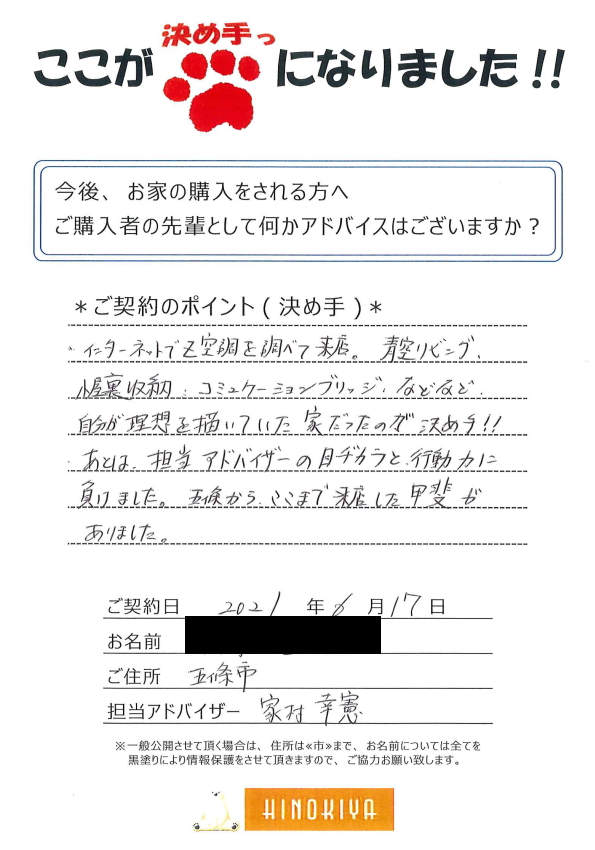 決め手っ
ここが になりました!!
今後、お家の購入をされる方へ
ご購入者の先輩として何かアドバイスはございますか?
*ご契約のポイント(決め手)*
・インターネットでZ空調を調べて来店。青空リビング、
小屋裏収納・コミュケーションブリッジ・などなど、
自分が理想を描いていた家だったのが決め手!!
・あとは、担当アドバイザーの目ヂカラと、行動力に
負けました。五條から、ここまで来店した甲斐が
ありました。
ご契約日 2021年6月17日
お名前
ご住所 五條市
担当アドバイザー 家村 幸憲
※一般公開させて頂く場合は、住所は≪市≫まで、お名前については全てを
黒塗りにより情報保護をさせて頂きますので、ご協力お願い致します。
HINOKIYA